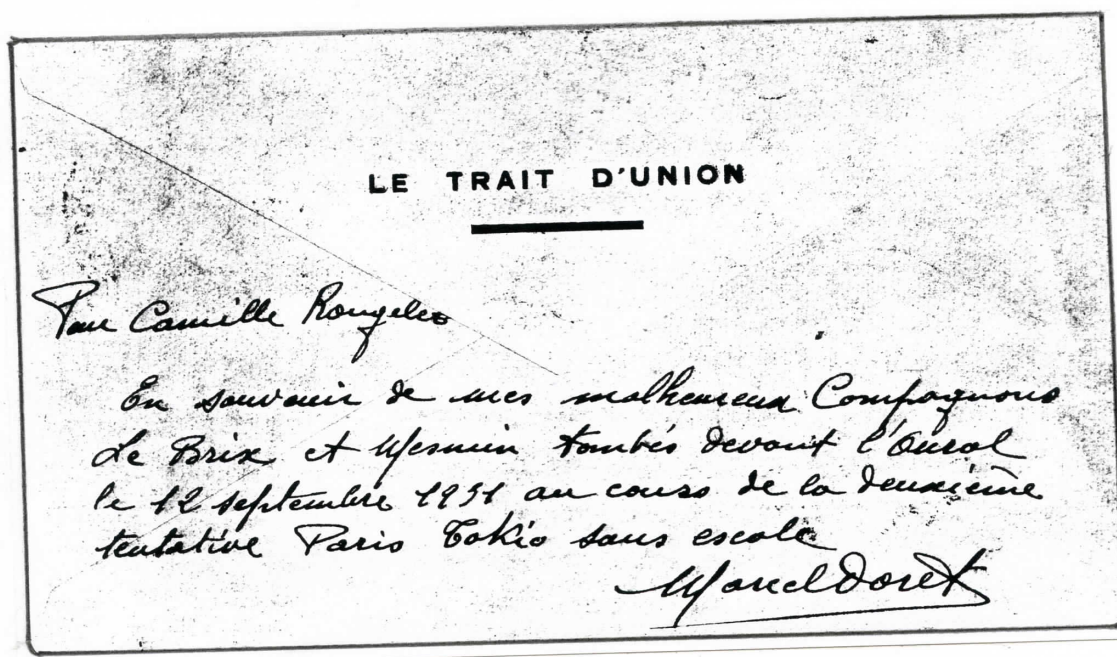 LE TRAIT D'UNION
Pour Camille
En souvenir de mes malheureux Compagnons
Le Brix et Mesmin tombés devant l'Oural
le 12 septembre 1931 au cours de la deuxième
tentative Paris Tokio sans escale
Marcel Doret